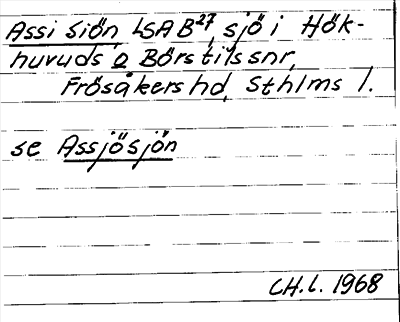 Assi siön, LSAB27, sjö i Hök-
huvuds o Börstils snr,
Frösåkers hd, Sthlms l.
se Assjösjön
CH.L. 1968